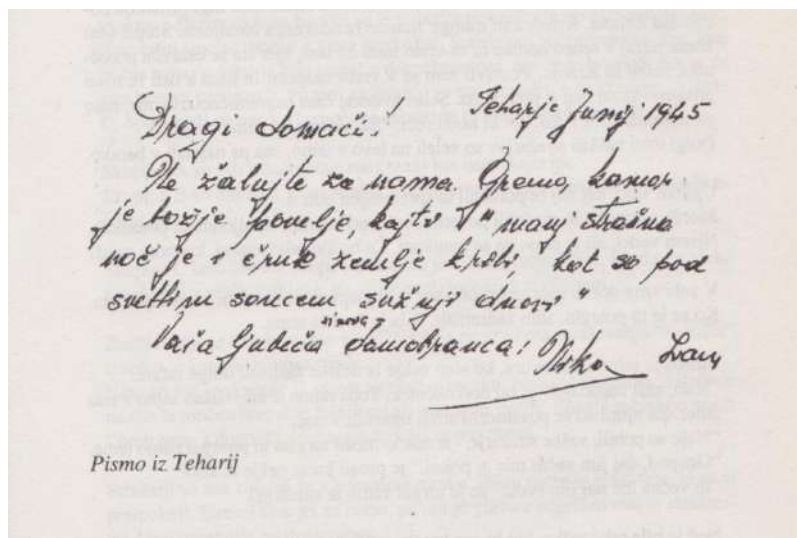 Teharje Junij 1945
Dragi domači!
Ne žalujte za nama. Gremo, kamor
je božje povelje, kajti "manj strašna
noč je v črne zemlje krili, kot so pod
svetlim soncem sužnji dnovi"
sinova
Vaša ljubeča domobranca: Mirko Ivan
Pismo iz Teharij